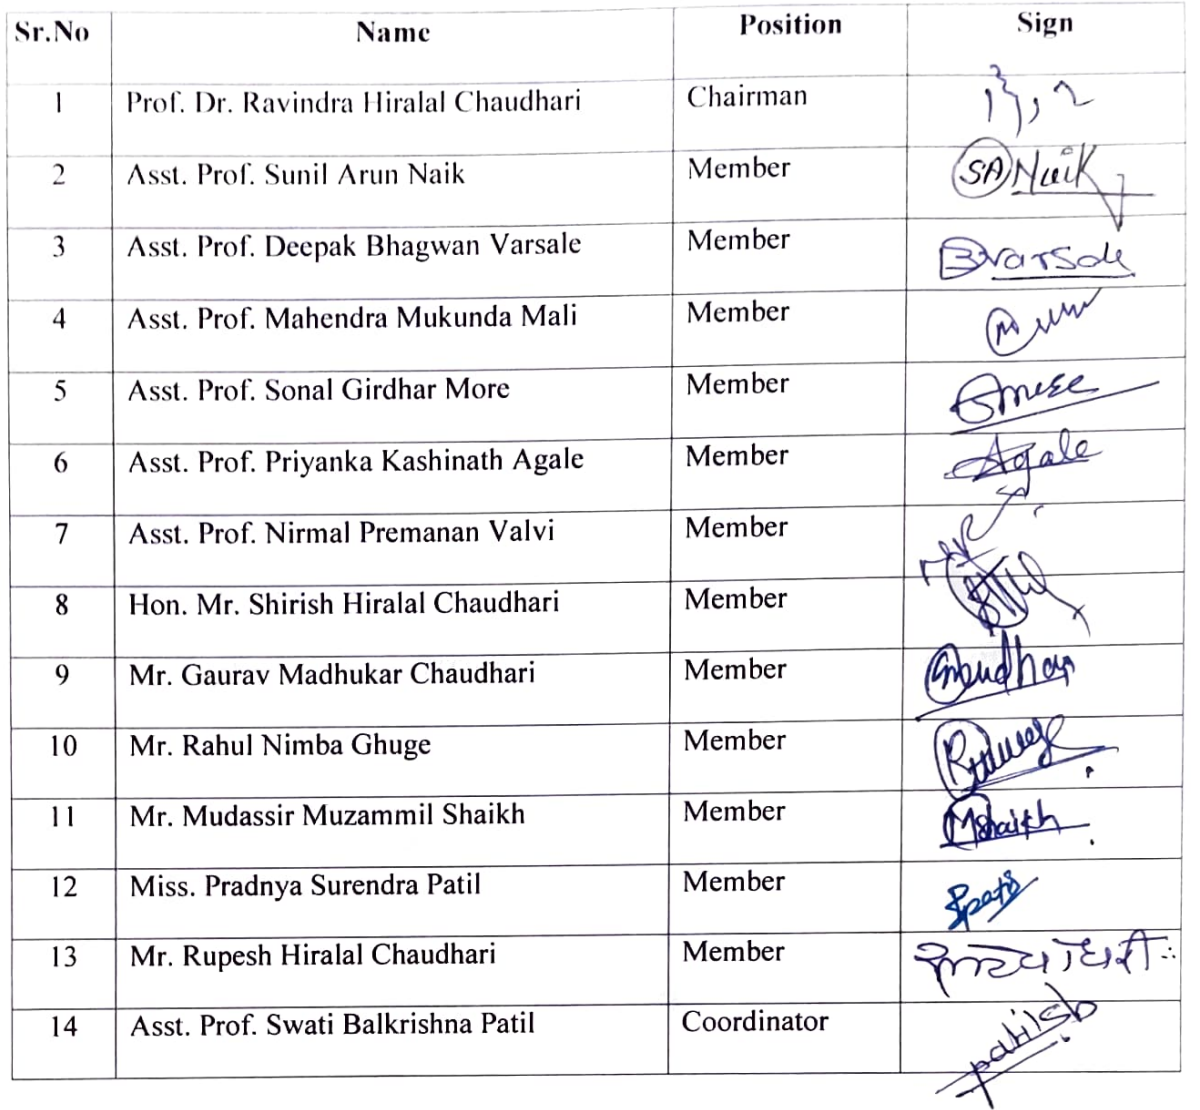 Sr.No Name Position Sign
1 Prof. Dr. Ravindra Hiralal Chaudhari Chairman
2 Asst. Prof. Sunil Arun Naik Member SANaik
3 Asst. Prof. Deepak Bhagwan Varsale Member
4 Asst. Prof. Mahendra Mukunda Mali Member
5 Asst. Prof. Sonal Girdhar More Member
6 Asst. Prof. Priyanka Kashinath Agale Member Agale
7 Asst. Prof. Nirmal Premanan Valvi Member
8 Hon. Mr. Shirish Hiralal Chaudhari Member
9 Mr. Gaurav Madhukar Chaudhari Member
10 Mr. Rahul Nimba Ghuge Member
11 Mr. Mudassir Muzammil Shaikh Member MShaikh
12 Miss. Pradnya Surendra Patil Member
13 Mr. Rupesh Hiralal Chaudhari Member
14 Asst. Prof. Swati Balkrishna Patil Coordinator patilsb